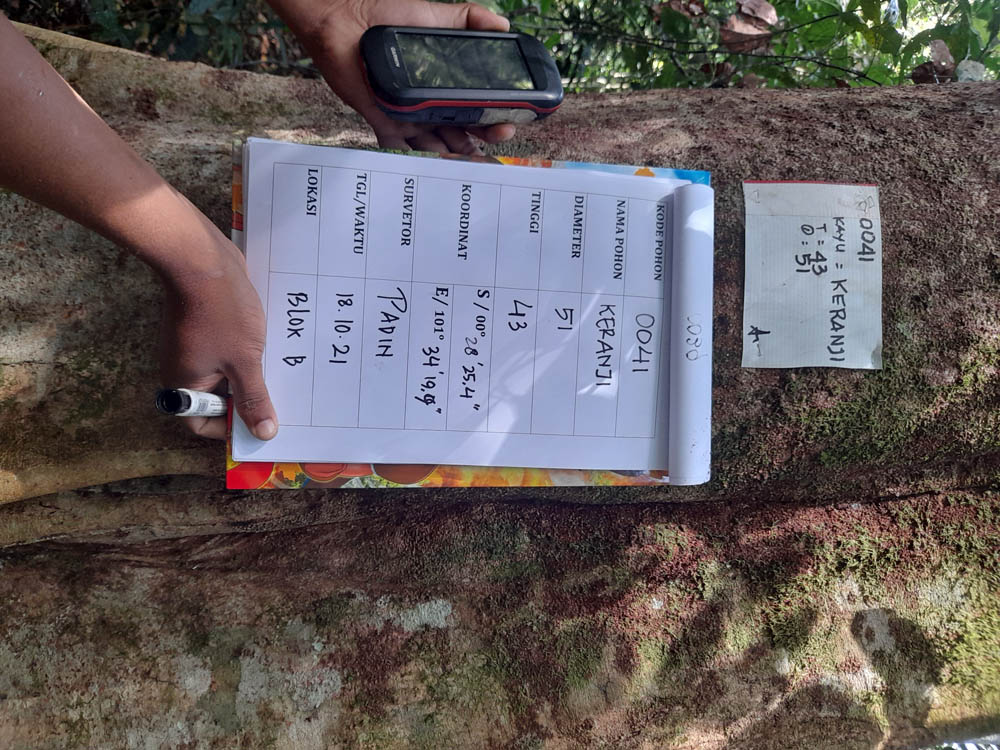 0041
KAYU = KERANJI
T = 43
Φ : 51
KODE POHON 0041
NAMA POHON KERANJI
DIAMETER 51
TINGGI 43
KOORDINAT S / 00° 28'25.4"
E/ 101° 34'19.9"
SURVETOR PADIN
TGL/WAKTU 18.10.21
LOKASI BLOK B
GARMIN